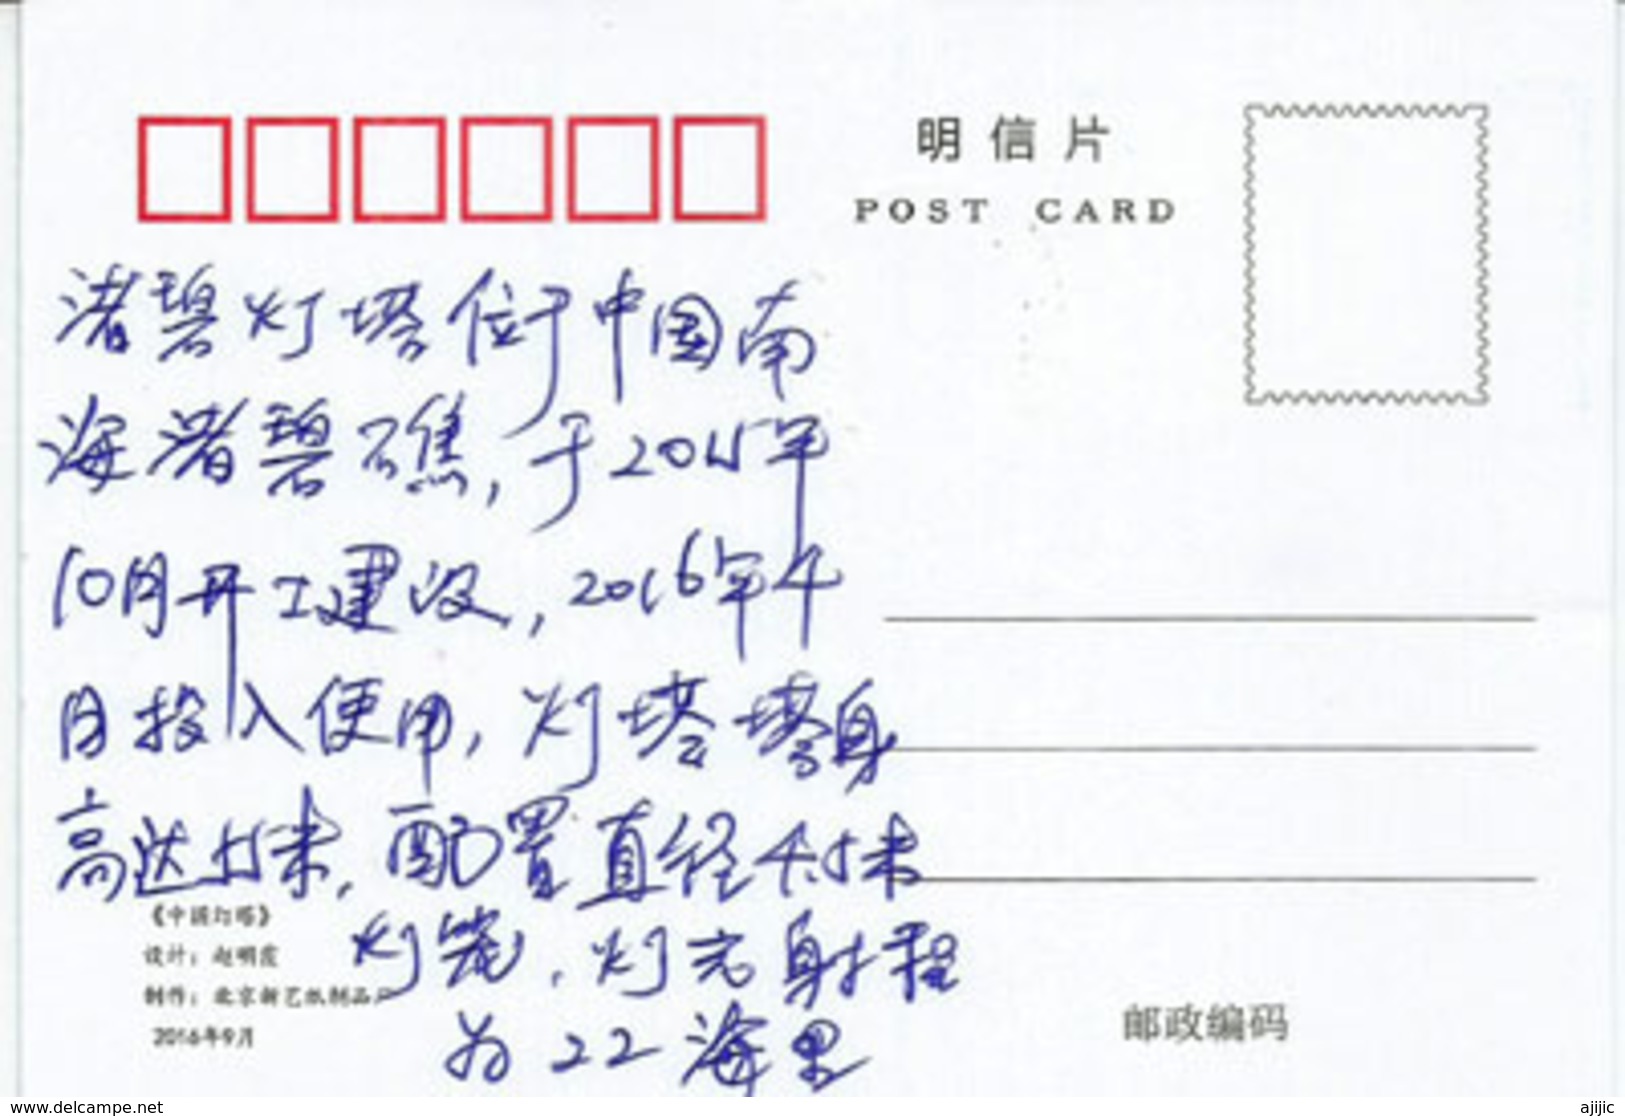 明信片
POST CARD
渚碧灯塔位于中国南
海渚碧礁，于2015年
10月开工建设，2016年4
月投入使用，灯塔塔身
高达55米，配置直径4.5米
灯笼，灯光射程
为22海里
《中国灯塔》
设计：赵明霞
制作：北京新艺纸制品厂
2016年9月
邮政编码
www.delcampe.net
ajijic